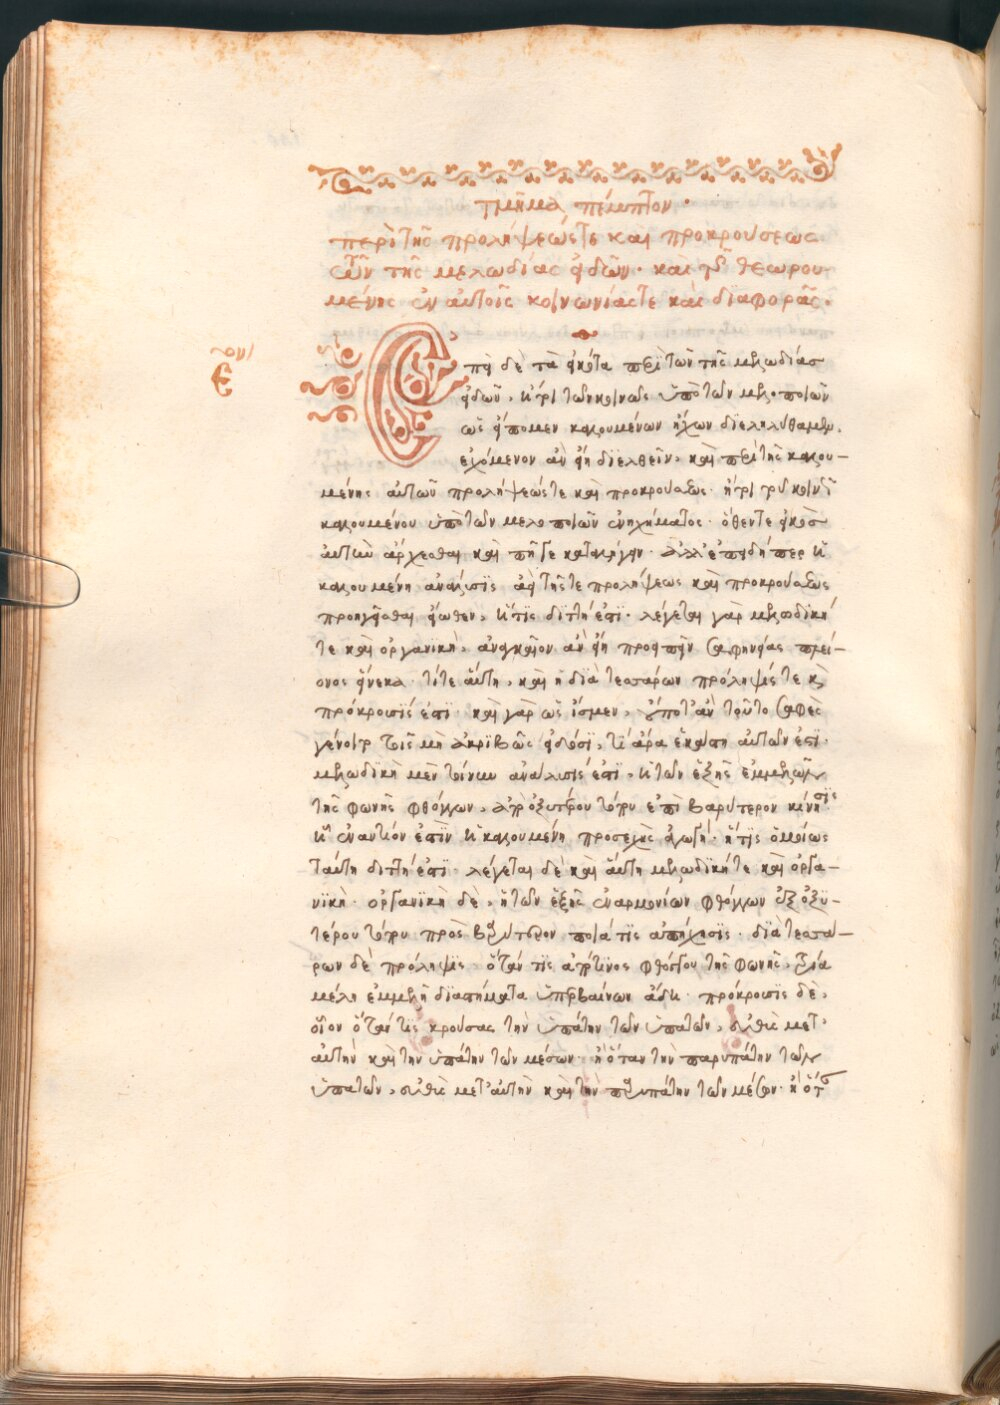 τμῆμα πέμπτον·
περὶ τῆς προλήψεώς τε καὶ προκρούσεως
τῶν τῆς μελωδίας εἰδῶν· καὶ τῆς θεωρου-
μένης ἐν αὐτοῖς κοινωνίας τε καὶ διαφορᾶς·
Ἐπεὶ δὲ τὰ εἰκότα περὶ τῶν τῆς μελωδίας
εἰδῶν, ἤτοι τῶν κοινῶς ὑπὸ τῶν μελοποιῶν
ὡς εἴπομεν καλουμένων ἤχων διεληλύθαμεν,
ἐχόμενον ἂν εἴη διελθεῖν, καὶ περὶ τῆς καλου-
μένης αὐτῶν προλήψεώς τε καὶ προκρούσεως· ἤτοι τοῦ κοινῶς
καλουμένου ὑπὸ τῶν μελοποιῶν ἐνηχήματος· ὅθεν τε εἰκὸς
αὐτῶν ἄρχεσθαι καὶ πῆ γε καταλήγειν· ἀλλ' ἐπειδήπερ ἡ
καλουμένη ἀνάλυσις ἀεὶ τῆς τε προλήψεως καὶ προκρούσεως
προηγεῖσθαι εἴωθεν, ἥτις διττή ἐστι· λέγεται γὰρ μελωδική
τε καὶ ὀργανική, ἀναγκαῖον ἂν εἴη προειπεῖν σαφηνείας πλεί-
ονος εἵνεκα· τί τε αὕτη, καὶ ἡ διὰ τεσσάρων πρόληψίς τε καὶ
πρόκρουσίς ἐστι· καὶ γὰρ ὡς ἴσμεν, οὔποτ' ἂν τοῦτο σαφὲς
γένοιτο τοῖς μὴ ἀκριβῶς εἰδόσι, τί ἄρα ἑκάστη αὐτῶν ἐστι·
μελωδικὴ μὲν τοίνυν ἀνάλυσίς ἐστι, ἡ τῶν ἑξῆς ἐμμελῶν
τῆς φωνῆς φθόγγων, ἀπὸ ὀξυτέρου τόπου ἐπὶ βαρύτερον κίνησις·
ᾗ ἐναντίον ἐστὶν ἡ καλουμένη προσεχὴς ἀγωγή· ἥτις ὁμοίως
ταύτῃ διττή ἐστι· λέγεται δὲ καὶ αὕτη μελωδική τε καὶ ὀργα-
νική· ὀργανικὴ δὲ, ἡ τῶν ἑξῆς ἐναρμονίων φθόγγων ἐξ ὀξυ-
τέρου τόπου πρὸς βαρύτερον ποιά τις ἀπήχησις· διὰ τεσσά-
ρων δὲ πρόληψις· ὅταν τις ἀπό τινος φθόγγου τῆς φωνῆς, τρία
μέλη ἐμμελῆ διαστήματα ὑπερβαίνων ᾄδῃ· πρόκρουσις δὲ,
οἷον ὅταν τις κρούσας τὴν ὑπάτην τῶν ὑπάτων, εὐθὺς μετ'
αὐτὴν καὶ τὴν ὑπάτην τῶν μέσων· ἢ ὅταν τὴν παρυπάτην τῶν
ὑπάτων, εὐθὺς μετ' αὐτὴν καὶ τὴν παρυπάτην τῶν μέσων· ἢ ὅτ